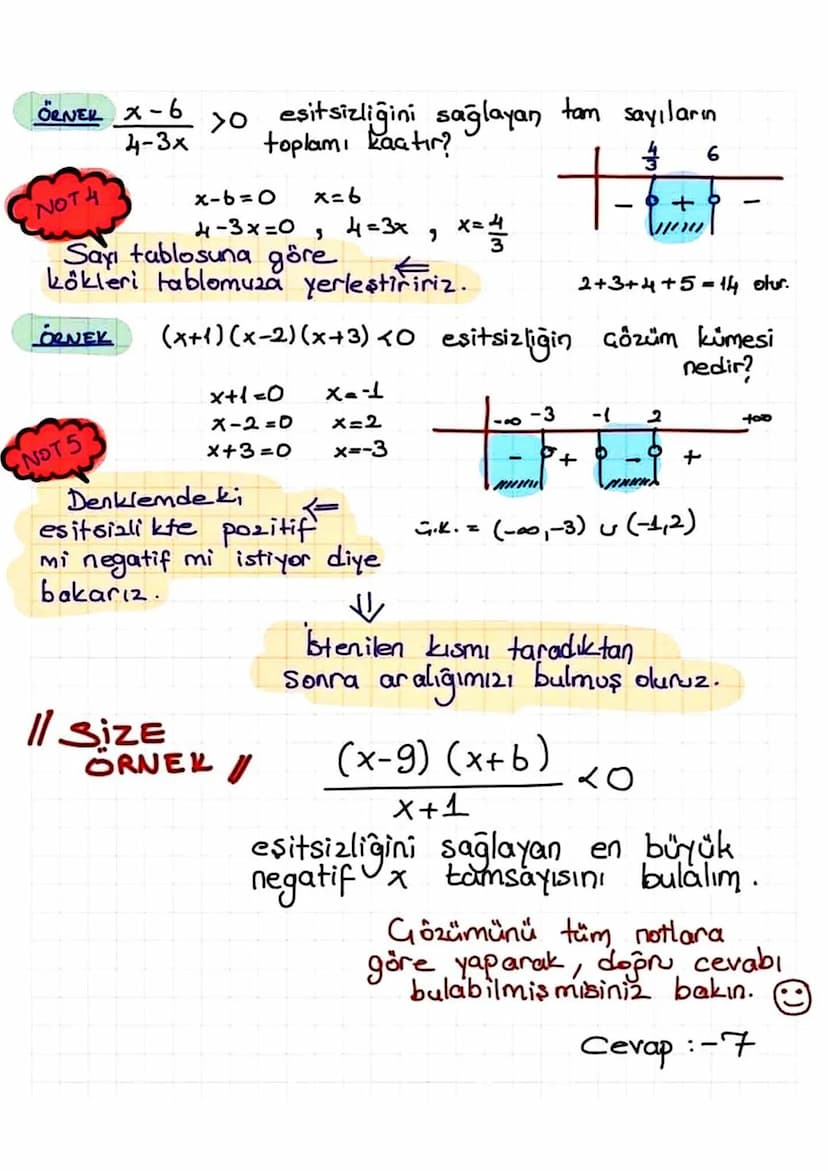 ÖRNEK x-6 / 4-3x >0 eşitsizliğini sağlayan tam sayıların
toplamı kaçtır?
4/3 6
- + -
NOT 4
x-6=0 x=6
4-3x=0 , 4=3x , x=4/3
Sayı tablosuna göre ⇐
kökleri tablomuza yerleştiririz.
2+3+4+5=14 olur.
ÖRNEK (x+1)(x-2)(x+3)<0 eşitsizliğin çözüm kümesi
nedir?
x+1=0 x=-1
x-2=0 x=2
x+3=0 x=-3
-∞ -3 -1 2 +∞
- + - +
NOT 5
Denklemdeki ⇐
eşitsizlikte pozitif
mi negatif mi istiyor diye
bakarız.
Ç.K. = (-∞,-3) ∪ (-1,2)
⇓
İstenilen kısmı taradıktan
sonra aralığımızı bulmuş oluruz.
// SİZE
ÖRNEK //
(x-9) (x+6) / x+1 <0
eşitsizliğini sağlayan en büyük
negatif x tamsayısını bulalım.
Çözümünü tüm notlara
göre yaparak, doğru cevabı
bulabilmişmisiniz bakın. ☺
Cevap :-7